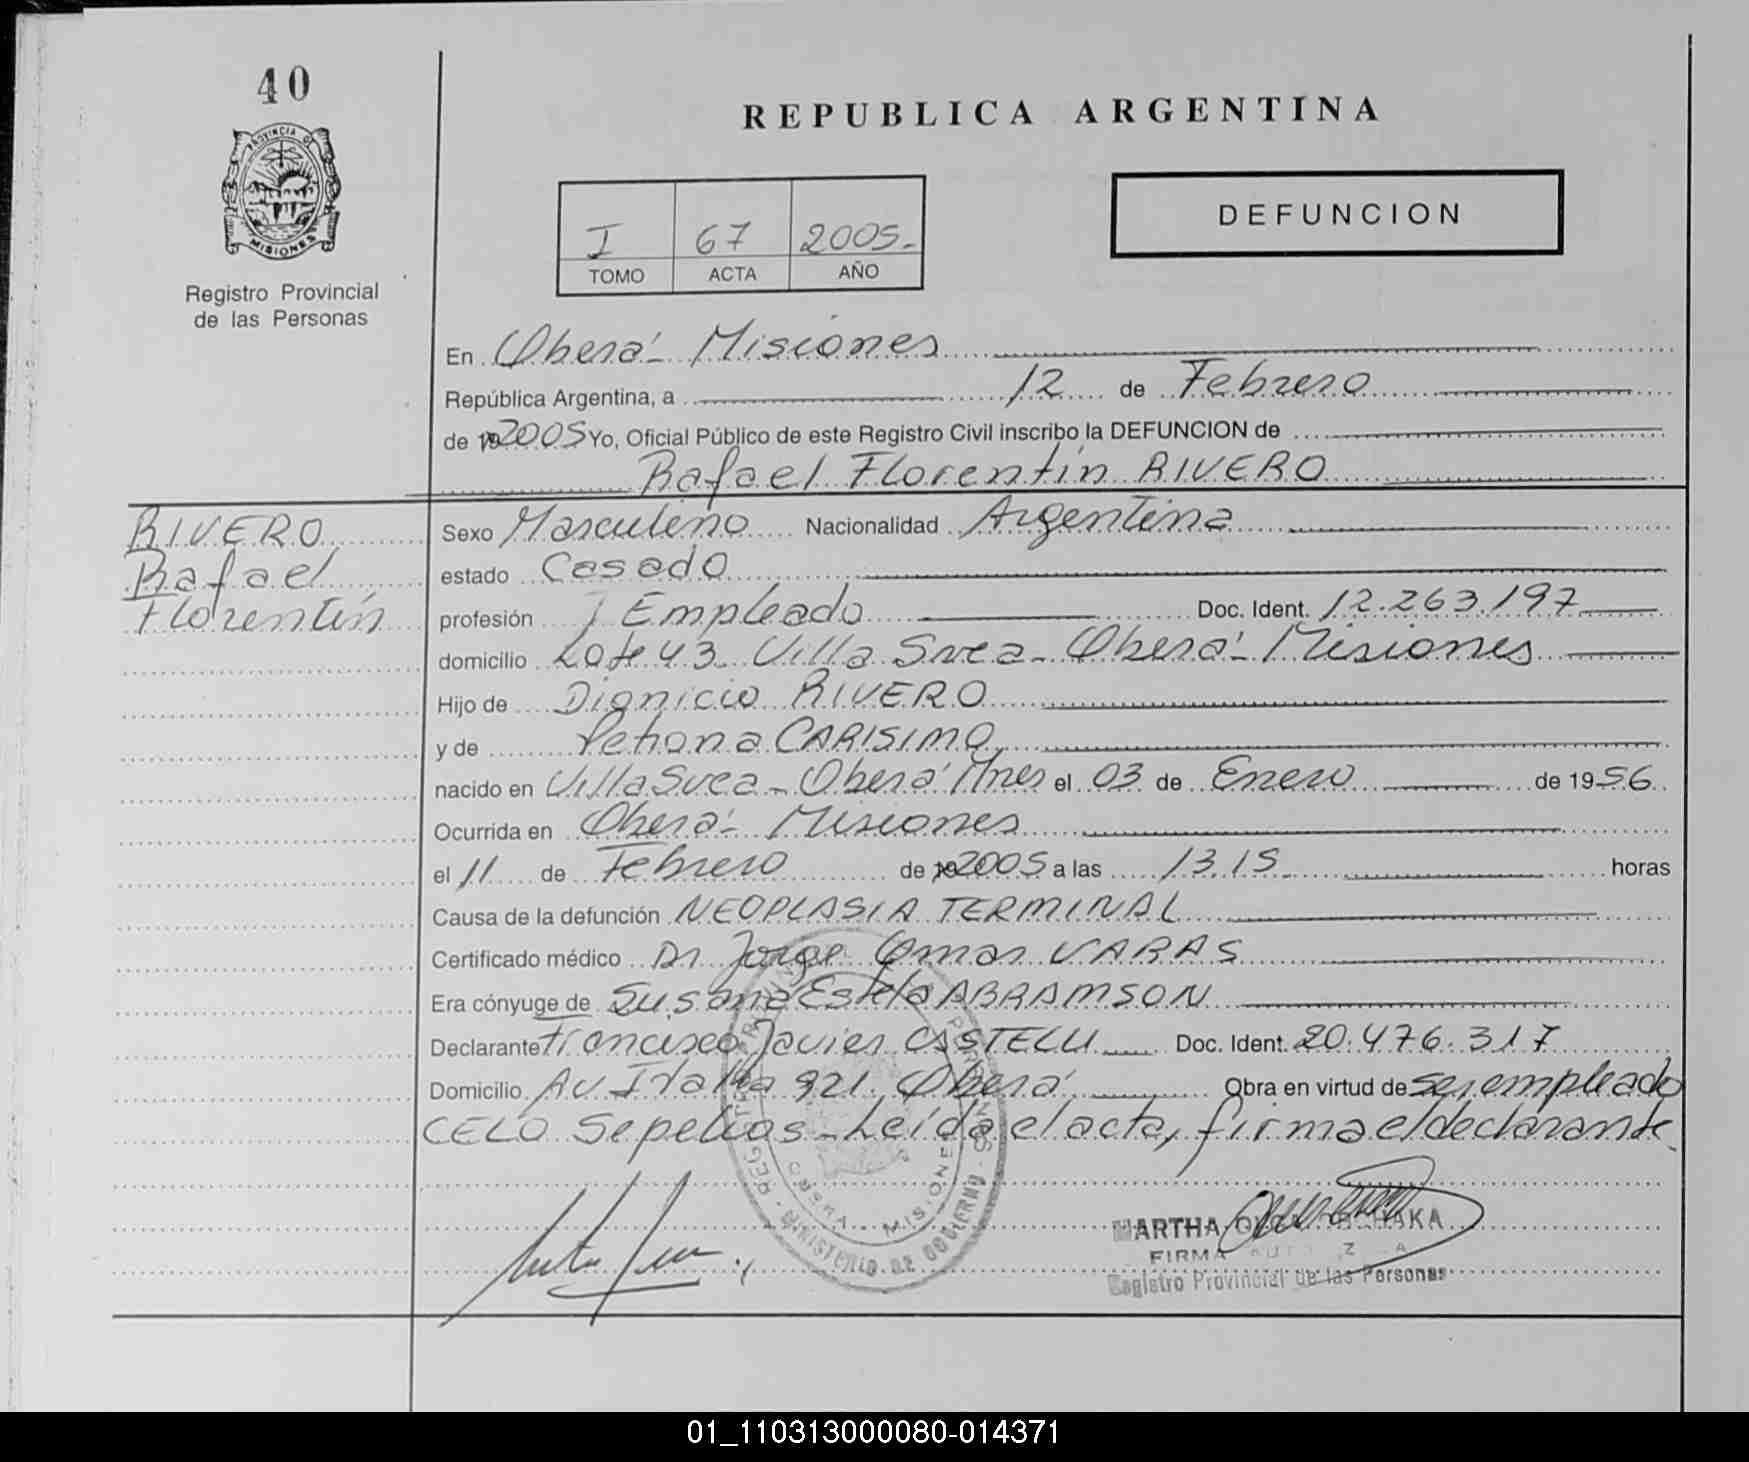 40
REPUBLICA ARGENTINA
PROVINCIA DE
MISIONES
DEFUNCION
I 67 2005.-
TOMO ACTA AÑO
Registro Provincial
de las Personas
En Oberá - Misiones
República Argentina, a 12 de Febrero
de 19 2005 Yo, Oficial Público de este Registro Civil inscribo la DEFUNCION de
Rafael Florentín RIVERO
RIVERO
Rafael
Florentín
Sexo Masculino Nacionalidad Argentina
estado Casado
profesión Empleado Doc. Ident. 12.263.197
domicilio Lote 43 Villa Svea - Oberá - Misiones
Hijo de Dionicio RIVERO
y de Petrona CARISIMO
nacido en Villa Svea - Oberá Mnes el 03 de Enero de 1956
Ocurrida en Oberá - Misiones
el 11 de Febrero de 19 2005 a las 13.15 horas
Causa de la defunción NEOPLASIA TERMINAL
Certificado médico Dr Jorge Omar VARAS
Era cónyuge de Susana Estela ABRAMSON
Declarante Francisco Javier Doc. Ident. 20.476.317
Domicilio Av Italia 921 Oberá Obra en virtud de ser empleado
CELO Sepelios - Leída el acta, firma el declarante
MINISTERIO DE GOBIERNO
MISIONES
MARTHA
FIRMA
Registro Provincial de las Personas
01_110313000080-014371